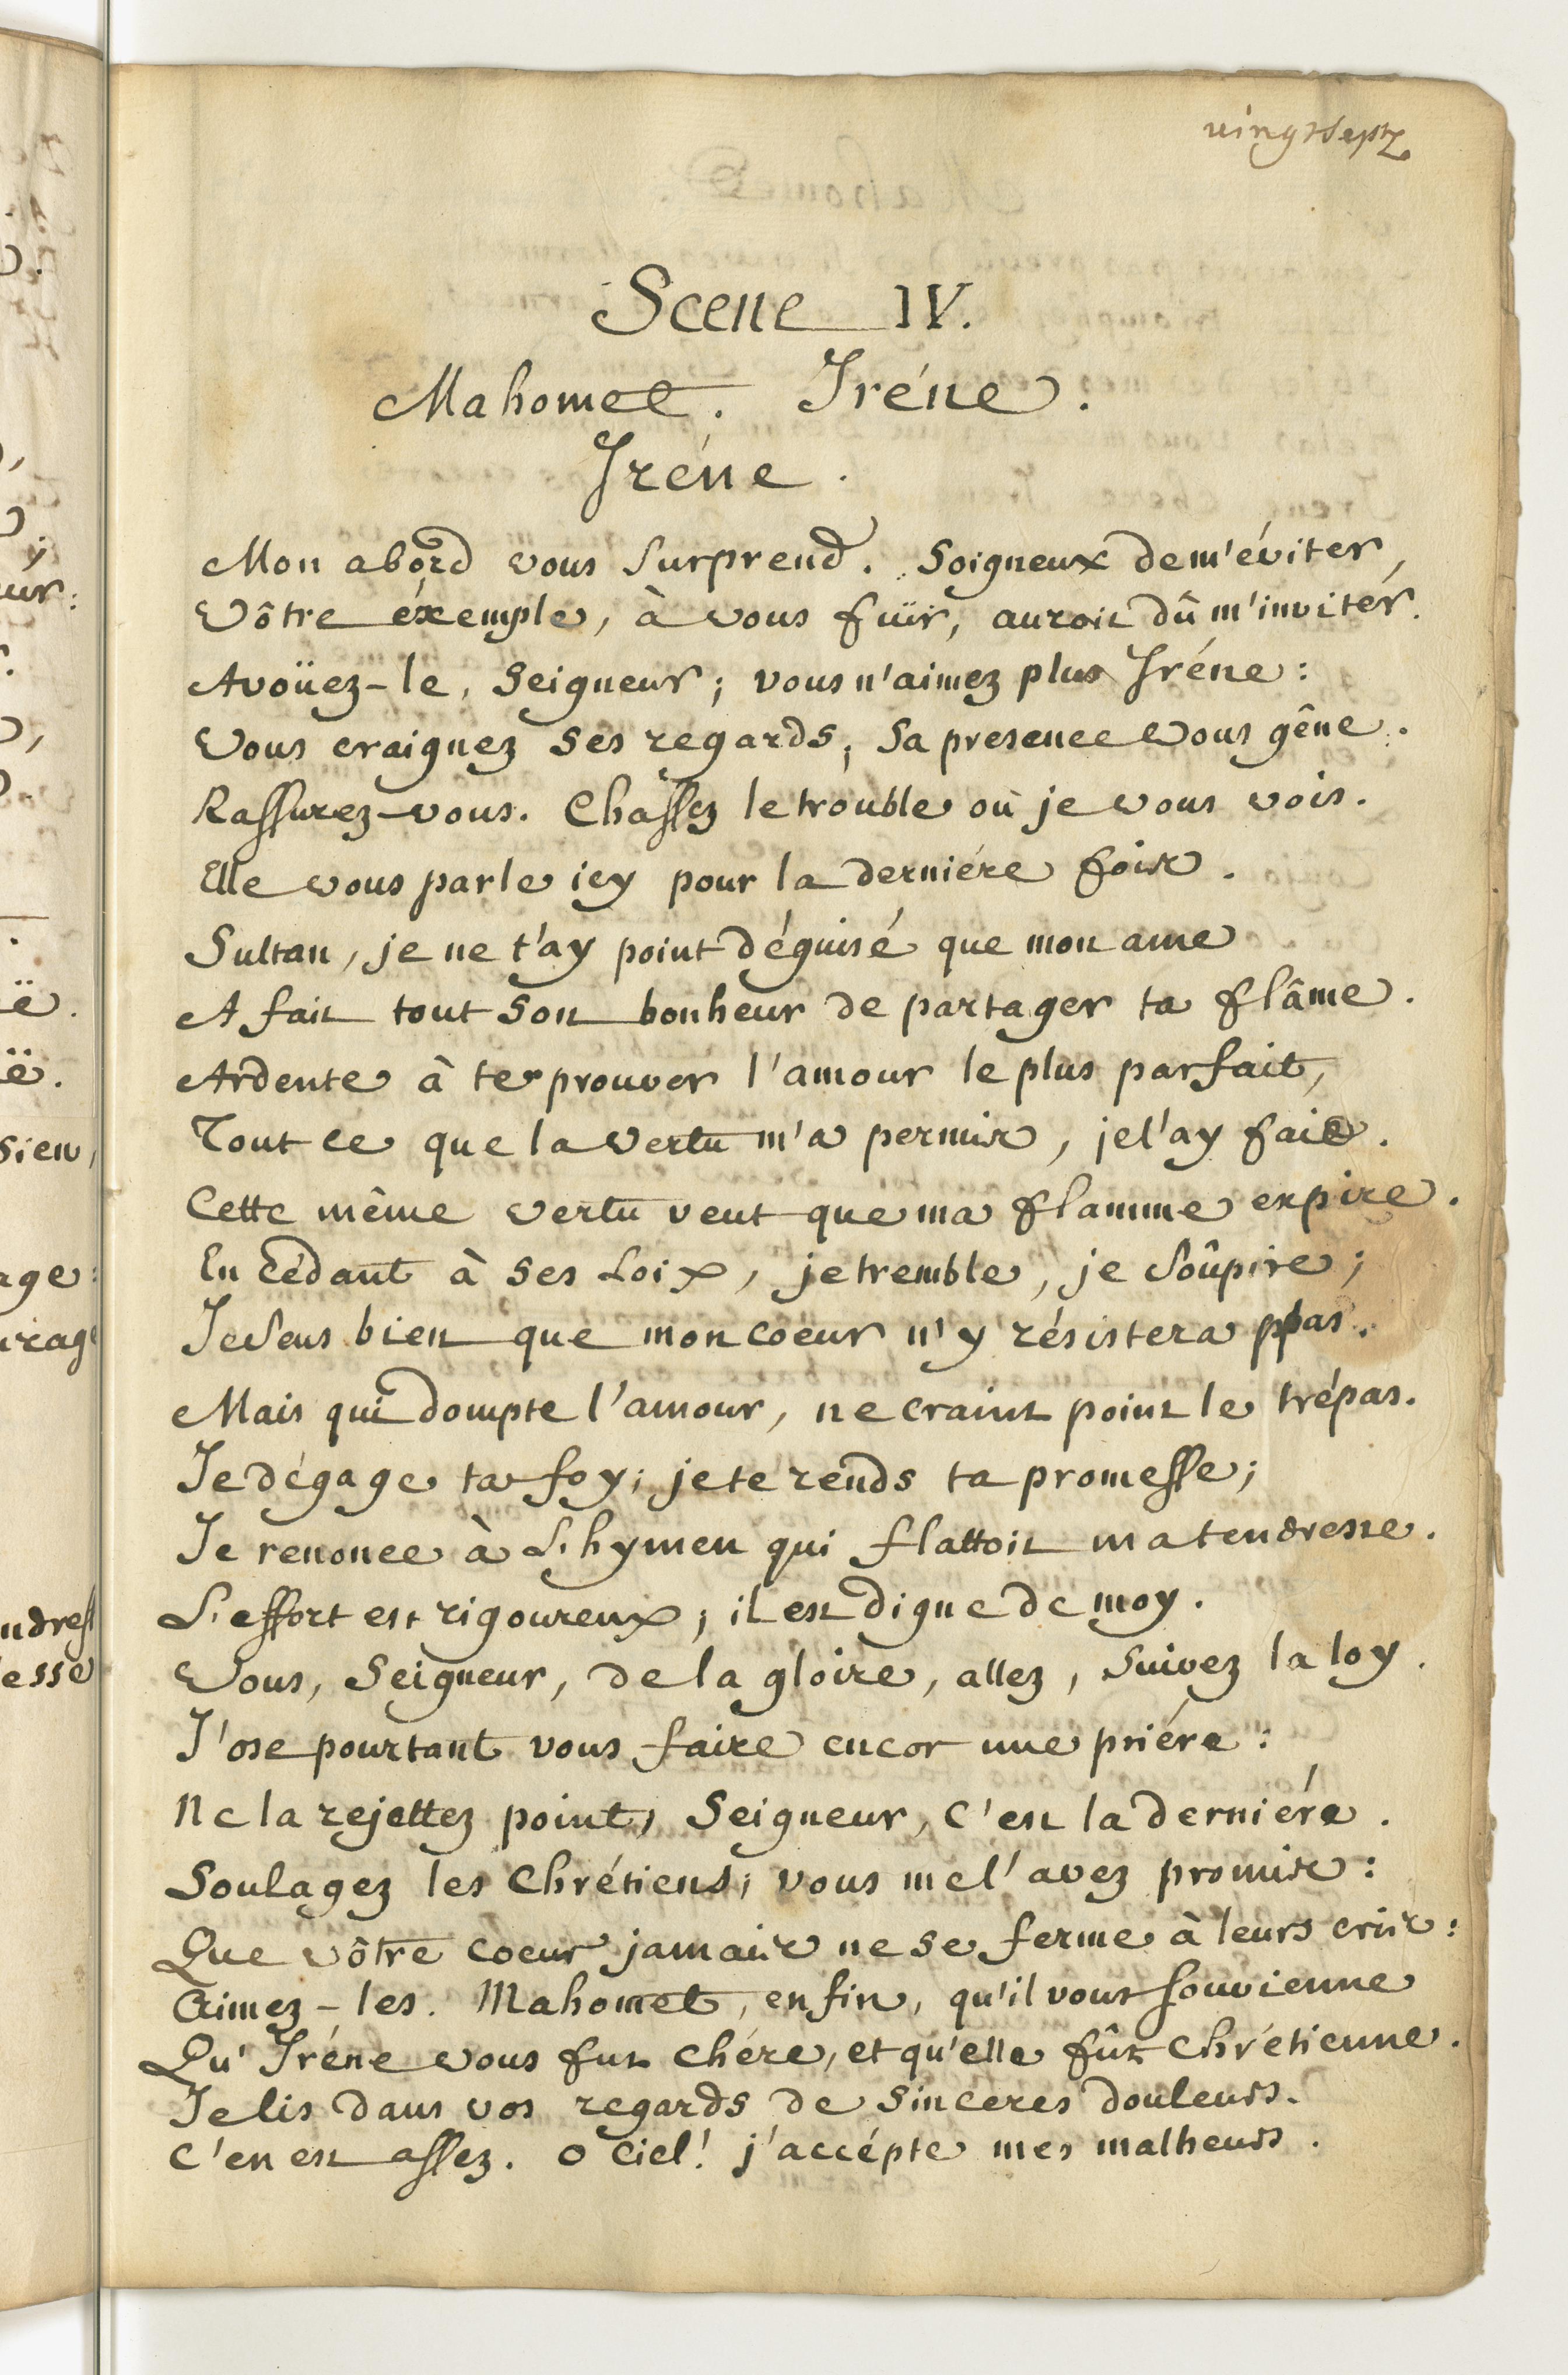 vingtsept
Scene IV.
Mahomet. Iréne.
Iréne.
Mon abord vous surprend. Soigneux de m'éviter,
Vôtre éxemple, à vous fuïr, auroit dû m'inviter.
Avoüez-le, Seigneur; vous n'aimez plus Iréne:
Vous craignez ses regards; sa presence vous gêne.
Rassurez-vous. Chassez le trouble où je vous vois.
Elle vous parle icy pour la derniére fois.
Sultan, je ne t'ay point déguisé que mon ame
A fait tout son bonheur de partager ta flâme.
Ardente à te prouver l'amour le plus parfait,
Tout ce que la vertu m'a permis, je l'ay fait.
Cette même vertu veut que ma flamme expire.
En cédant à ses Loix, je tremble, je soûpire;
Je sens bien que mon coeur n'y résistera pas.
Mais qui dompte l'amour, ne craint point le trépas.
Je dégage ta foy; je te rends ta promesse;
Je renonce à L'hymen qui flattoit ma tendresse.
L'effort est rigoureux; il est digne de moy.
Vous, Seigneur, de la gloire, allez, suivez la loy.
J'ose pourtant vous faire encor une priére:
Ne la rejettez point, Seigneur, c'est la derniére.
Soulagez les Chrétiens; vous me l'avez promis:
Que vôtre coeur jamais ne se ferme à leurs cris:
Aimez-les. Mahomet, enfin, qu'il vous souvienne
Qu'Iréne vous fut chére, et qu'elle fût Chrétienne.
Je lis dans vos regards de sinceres douleurs.
C'en est assez. O Ciel! j'accépte mes malheurs.